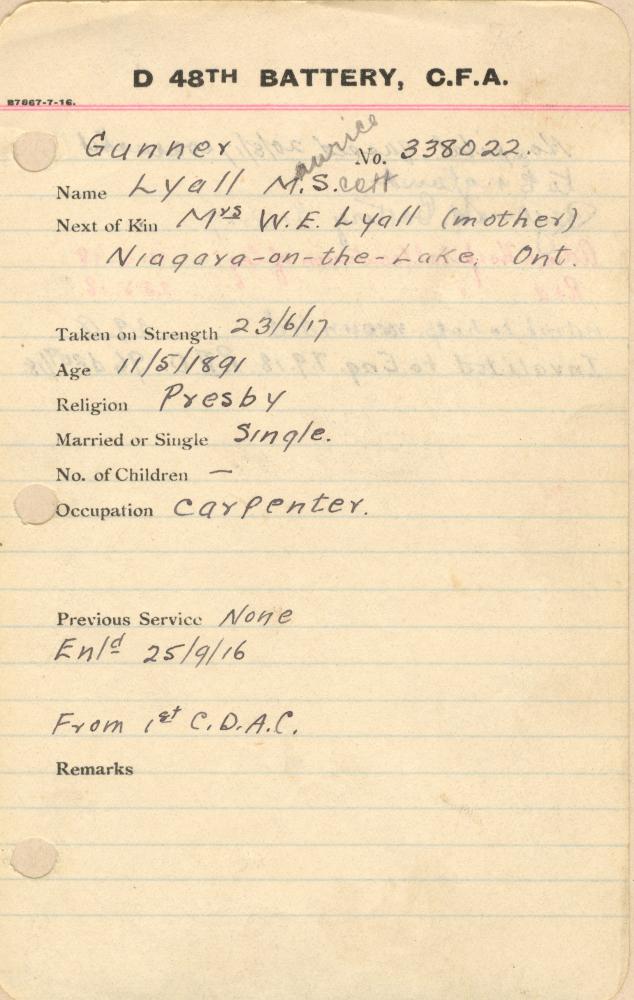 D 48TH BATTERY, C.F.A.
87667-7-16.
Gunner No. 338022.
Name Lyall Maurice Scott
Next of Kin Mrs W.E. Lyall (mother)
Niagara-on-the-Lake, Ont.
Taken on Strength 23/6/17
Age 11/5/1891
Religion Presby
Married or Single Single.
No. of Children —
Occupation Carpenter.
Previous Service None
Enl'd 25/9/16
From 1st C.D.A.C.
Remarks